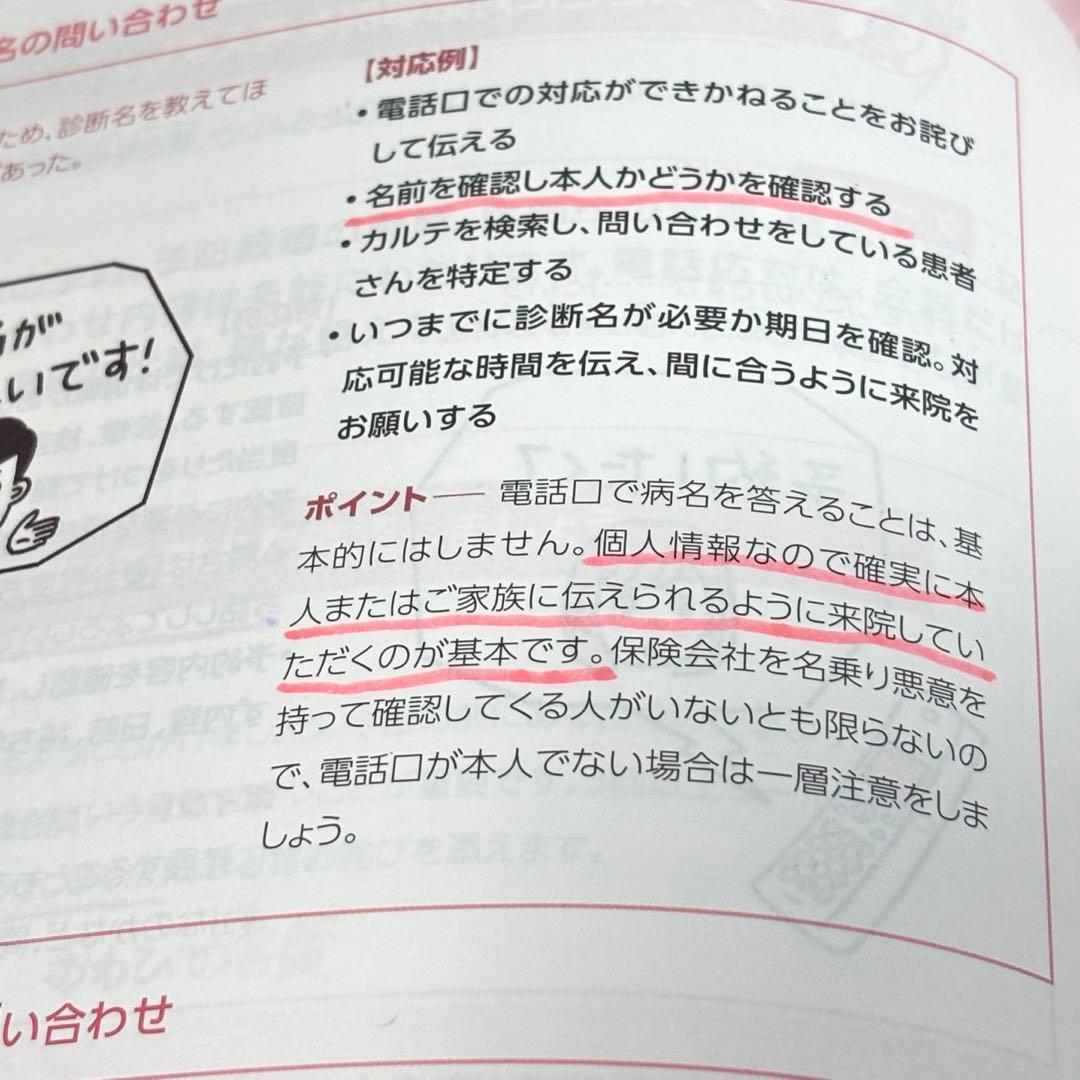 名の問い合わせ
ため、診断名を教えてほ
があった。
【対応例】
・電話口での対応ができかねることをお詫び
して伝える
・名前を確認し本人かどうかを確認する
・カルテを検索し、問い合わせをしている患者
さんを特定する
・いつまでに診断名が必要か期日を確認。対
応可能な時間を伝え、間に合うように来院を
お願いする
が
いです!
ポイント── 電話口で病名を答えることは、基
本的にはしません。個人情報なので確実に本
人またはご家族に伝えられるように来院してい
ただくのが基本です。保険会社を名乗り悪意を
持って確認してくる人がいないとも限らないの
で、電話口が本人でない場合は一層注意をしま
しょう。
い合わせ